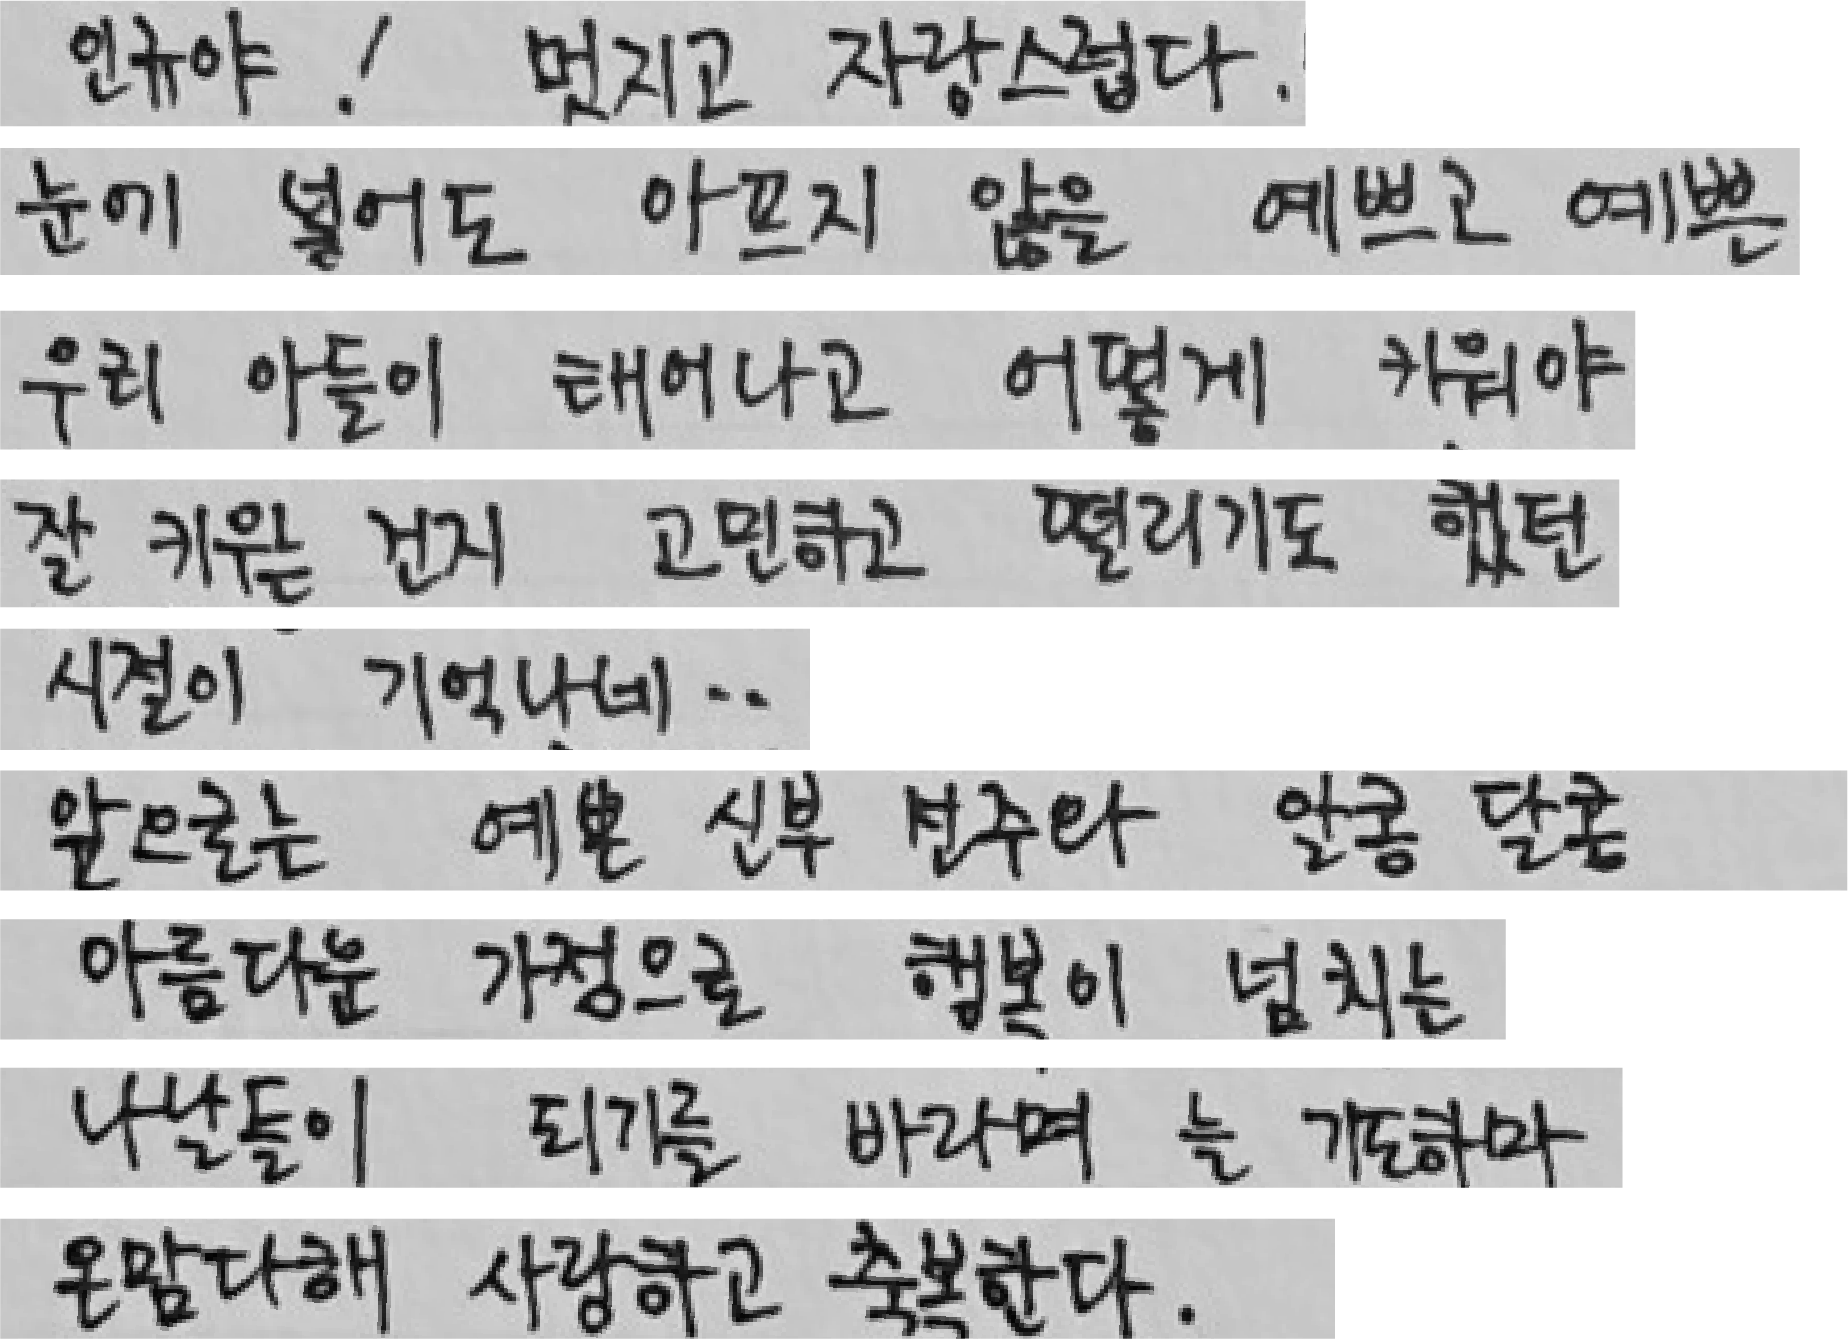 인규야! 멋지고 자랑스럽다.
눈에 넣어도 아프지 않을 예쁘고 예쁜
우리 아들이 태어나고 어떻게 키워야
잘 키우는 건지 고민하고 떨리기도 했던
시절이 기억나네..
앞으로는 예쁜 신부 연주와 알콩 달콩
아름다운 가정으로 행복이 넘치는
나날들이 되기를 바라며 늘 기도하마
온맘다해 사랑하고 축복한다.